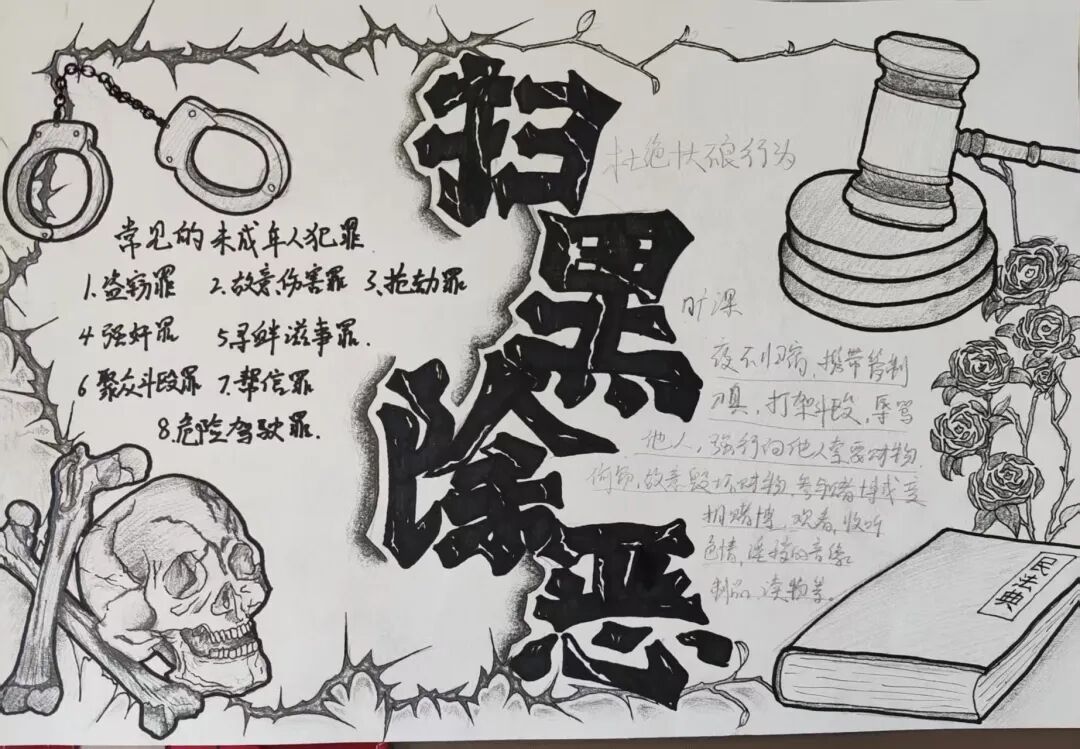 扫黑除恶
常见的未成年人犯罪
1.盗窃罪 2.故意伤害罪 3.抢劫罪
4.强奸罪 5.寻衅滋事罪.
6.聚众斗殴罪 7.帮信罪
8.危险驾驶罪.
杜绝不良行为
旷课
夜不归宿,携带管制
刀具,打架斗殴,辱骂
他人,强行向他人索要财物,
偷窃,故意毁坏财物,参与赌博或变
相赌博,观看,收听
色情,淫秽的音像
制品,读物等。
民法典